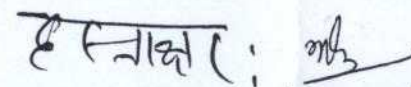 हस्ताक्षर: